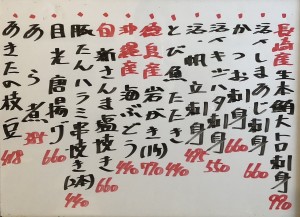 長崎産生本鮪大トロ刺身 990
活〆しまあじ刺身 660
かつお刺身 660
活〆キジハタ刺身 550
活〆帆立刺身 495
とび魚たたき 440
徳島産岩がき(1ヶ) 770
沖縄産海ぶどう 440
旬新さんま塩焼き 660
豚たんハラミ串焼き(2本) 440
目光唐揚げ 660
あら煮 385
あきたの枝豆 418